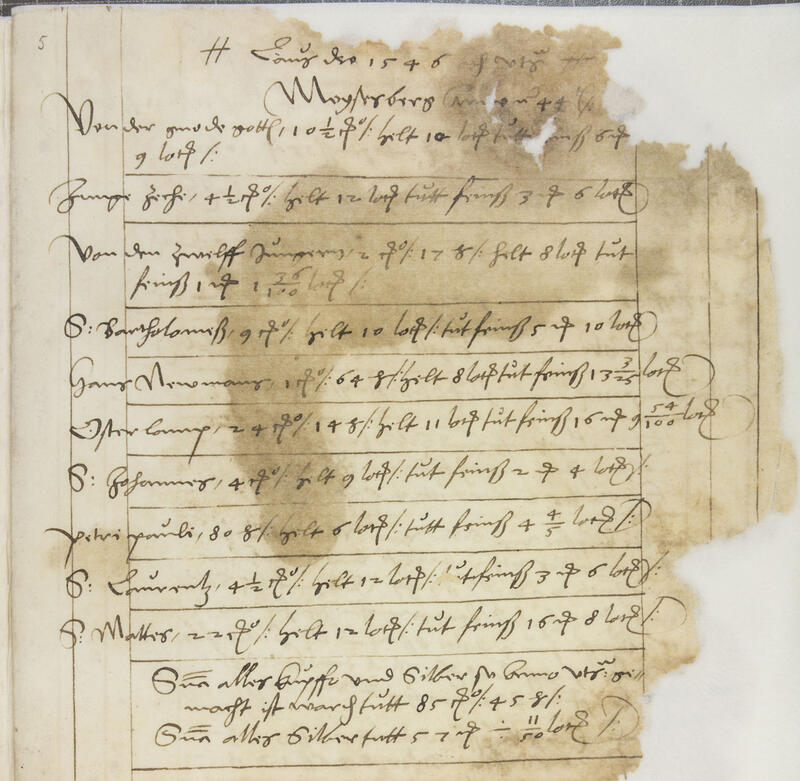 5
# Laus deo 1546 #
Meysesberg
Von der gnode gott, 10 1/2 c°/: helt 10 lott tutt feinß 6 m
9 lott /:
Junge Zeche, 4 1/2 c°/: helt 12 lott tutt feinß 3 m 6 lott
Von den zwelff Jungern, 2 c°/: 17 ℔/: helt 8 lott tut
feinß 1 m 1 36/100 lott /:
S: Bartholomeß, 9 c°/: helt 10 lott /: tut feinß 5 m 10 lott
Hans Newmans, 1 c°/: 64 ℔/: helt 8 lott tut feinß 13 3/25 lott
Osterlamp, 24 c°/: 14 ℔/: helt 11 lott tut feinß 16 m 9 54/100 lott
S: Johannes, 4 c°/: helt 9 lott /: tut feinß 2 m 4 lott /:
petri pauli, 80 ℔/: helt 6 lott /: tutt feinß 4 4/5 lott /:
S: Laurentz, 4 1/2 c°/: helt 12 lott /: tut feinß 3 m 6 lott /:
S: Mattes, 22 c°/: helt 12 lott /: tut feinß 16 m 8 lott /:
Suma alles kupffr und Silber so ge-
macht ist tutt 85 c°/: 45 ℔/:
Suma alles Silber tutt 57 m ÷ 11/50 lott /: